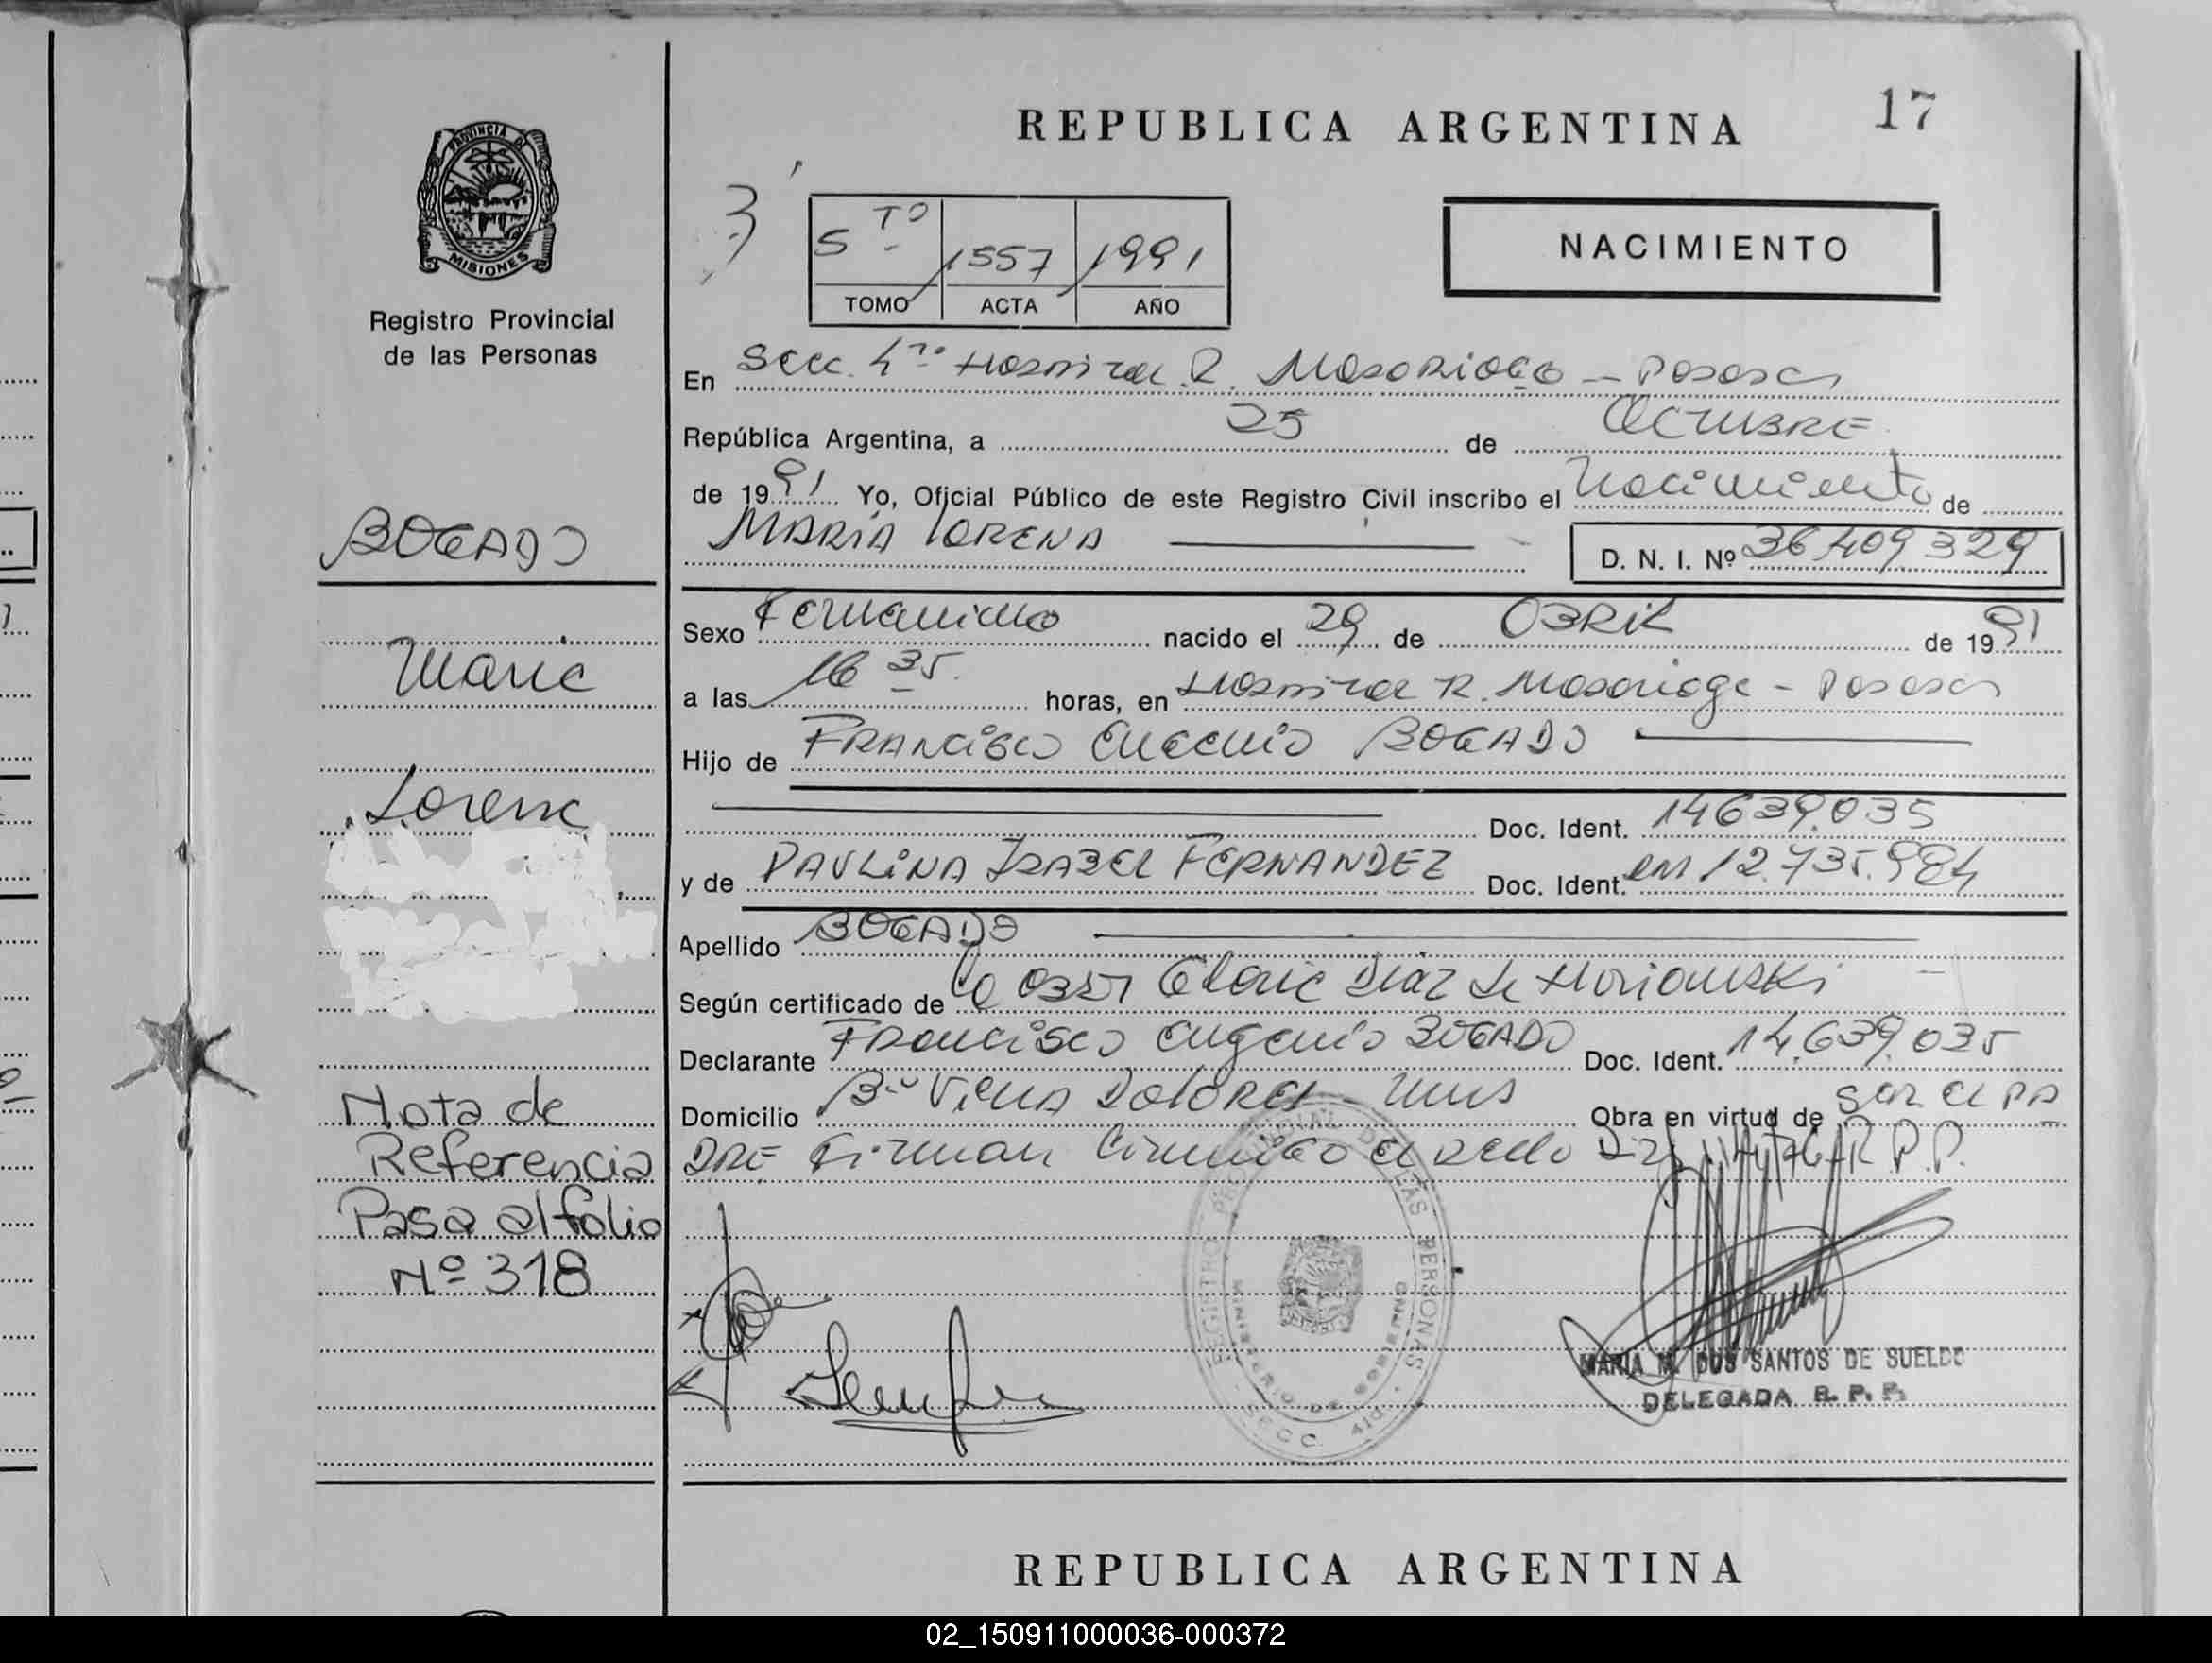 REPUBLICA ARGENTINA
17
PROVINCIA DE
MISIONES
Registro Provincial
de las Personas
5 to
1557
1991
TOMO
ACTA
AÑO
NACIMIENTO
En Secc. 4ta Hospital R. Madariaga - Posadas
República Argentina, a 25 de OCTUBRE
de 1991 Yo, Oficial Público de este Registro Civil inscribo el Nacimiento de
MARIA LORENA
D. N. I. Nº 36409329
BOGADO
Maria
Lorena
Sexo Femenino nacido el 29 de ABRIL de 1991
a las 16 35 horas, en Hospital R. Madariaga - Posadas
Hijo de FRANCISCO EUGENIO BOGADO
Doc. Ident. 14639.035
y de PAULINA ISABEL FERNANDEZ Doc. Ident. DNI 12.735.984
Apellido BOGADO
Según certificado de la Obst Diaz de
Declarante FRANCISCO Eugenio BOGADO Doc. Ident. 14.639.035
Domicilio Bº Villa DOLORES - Obra en virtud de Ser el PA
DRE Firman Conmigo el R.P.P.
Nota de
Referencia
Pasa al folio
Nº 318
REGISTRO PROVINCIAL DE LAS PERSONAS
MINISTERIO DE GOBIERNO
SECC. 4ta.
MARIA M. DOS SANTOS DE SUELDO
DELEGADA R. P. P.
REPUBLICA ARGENTINA
02_150911000036-000372